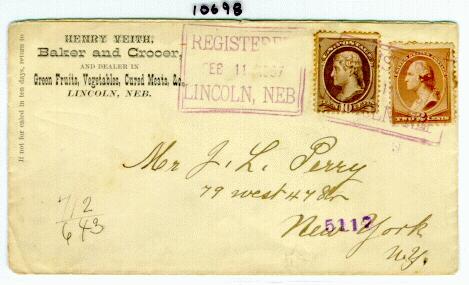 10698
If not called for in ten days, return to
HENRY VEITH,
Baker and Grocer,
AND DEALER IN
Green Fruits, Vegetables, Cured Meats, &c.,
LINCOLN, NEB.
REGISTERED
FEB 11 1887
LINCOLN, NEB
U.S. POSTAGE
10
TWO CENTS
Mr J. L. Perry
79 west 47 St
New York
N.Y.
5117
712
643